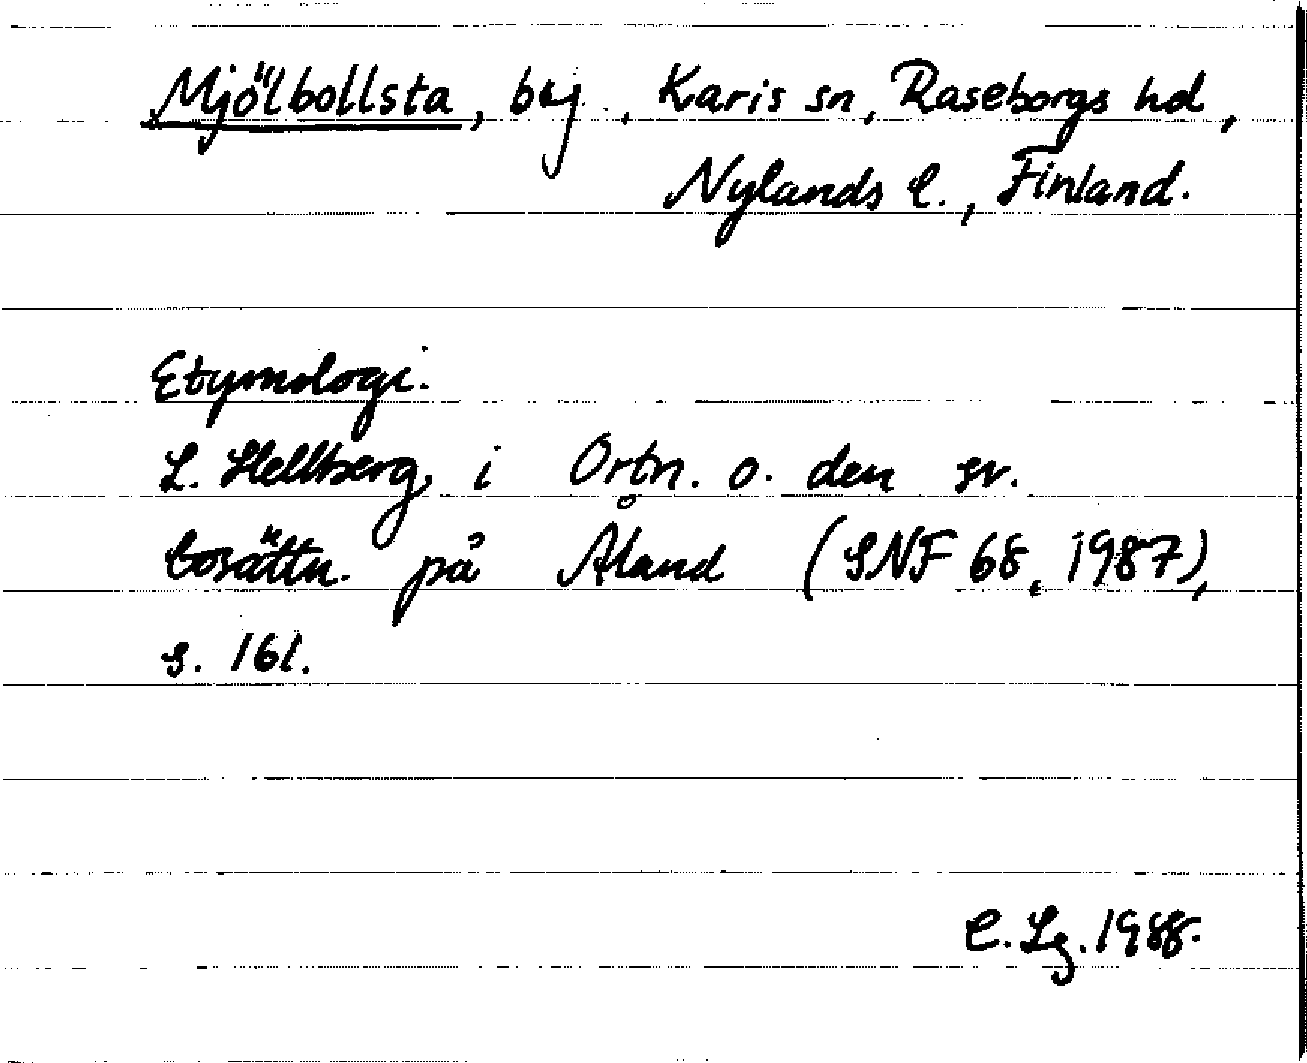 Mjölbollsta, by, Karis sn, Raseborgs hd,
Nylands l., Finland.
Etymologi.
L. Hellberg, i Ortn. o. den sv.
bosättn. på Åland (SNF 68, 1987),
s. 161.
C. Lg. 1988.